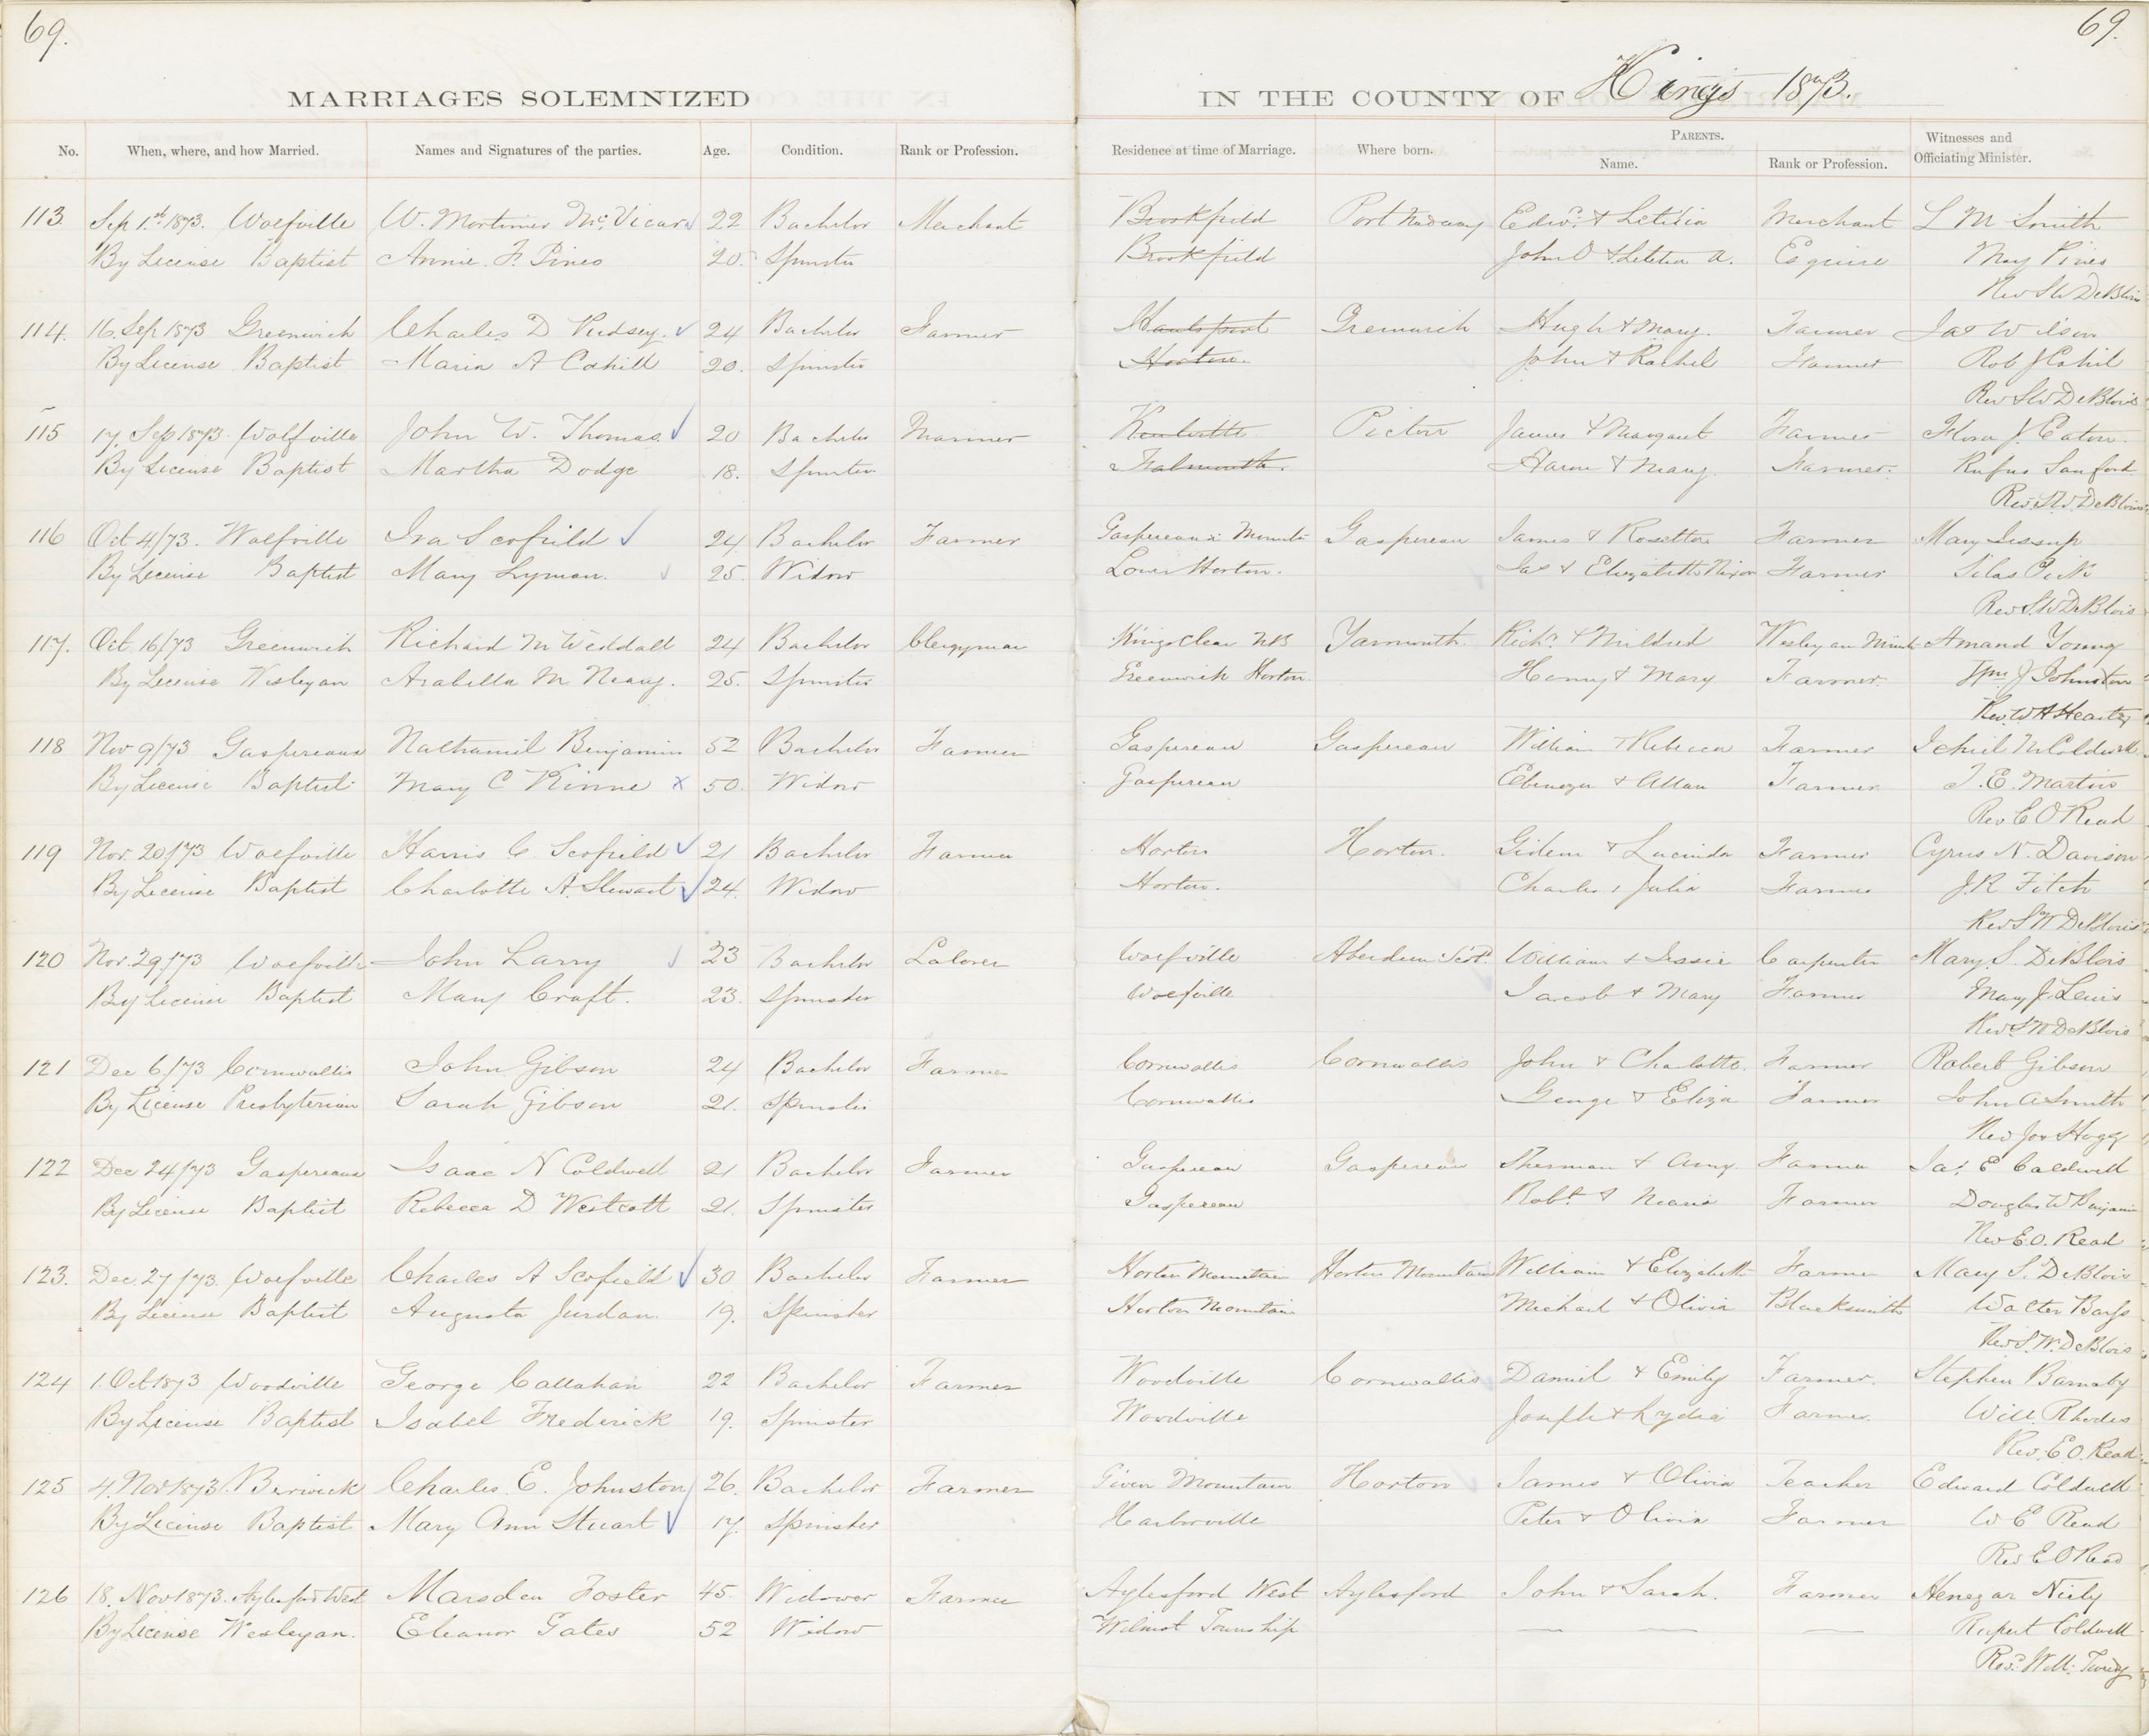 69. 69.
MARRIAGES SOLEMNIZED IN THE COUNTY OF Kings 1873.
No. When, where, and how Married. Names and Signatures of the parties. Age. Condition. Rank or Profession. Residence at time of Marriage. Where born. PARENTS. Name. Rank or Profession. Witnesses and Officiating Minister.
113 Sep 1st 1873. Wolfville W. Mortimer McVicar 22 Bachelor Merchant Brookfield Port Medway Edwd. & Letitia Merchant L M Smith
By License Baptist Annie. F. Pineo 20. Spinster Brookfield John O & Letitia A. Esquire May Pineo
Rev S W DeBlois
114. 16. Sep 1873 Greenwich Charles D Pudsey. 24 Bachelor Farmer Hantsport Greenwich Hugh & Mary. Farmer Jas Wilson
By License Baptist Maria A Cahill 20. Spinster Horton. John & Rachel Farmer Rob J Cahil
Rev S W DeBlois
115 17, Sep 1873. Wolfville John W. Thomas 20 Bachelor Mariner Kentville Pictou James & Margaret Farmer Flora J. Eaton.
By License Baptist Martha Dodge 18. Spinster Falmouth. Aaron & Mary. Farmer. Rufus Sanford
Rev. S. W. DeBlois
116 Oct 4/73. Wolfville Ira Scofield 24. Bachelor Farmer Gaspereaux Mount Gaspereau James & Rosetta Farmer Mary Jessup
By License Baptist Mary Lyman. 25. Widow Lower Horton. Jas & Elizabeth Nixon Farmer Silas
Rev S. W DeBlois
117. Oct 16/73 Greenwich Richard M Weddall 24 Bachelor Clergyman Kingsclear NB Yarmouth. Richd. & Mildred Wesleyan Minist Amand Young
By License Wesleyan Arabella M Neary. 25. Spinster Greenwich Horton. Henry & Mary Farmer. Wm J Johnston
Rev. W H Heartz
118 Nov 9/73 Gaspereaux Nathaniel Benjamin 52 Bachelor Farmer Gaspereau Gaspereau William & Rebecca Farmer M Coldwell
By License Baptist Mary C Kinne x 50. Widow Gaspereau Ebenezer & Farmer E. Martin
Rev E O Read
119 Nov. 20/73 Wolfville Harris C Scofield 21 Bachelor Farmer Horton Horton. Gideon & Lucinda Farmer Cyrus N. Davison
By License Baptist Charlotte A. Stewart 24. Widow Horton. Charles, Julia Farmer J. R Fitch
Rev S W DeBlois
120 Nov. 29/73 Wolfville John Larry 23 Bachelor Laborer Wolfville Aberdeen Scot. William & Jessie Carpenter Mary. S. DeBlois
By License Baptist Mary Craft. 23. Spinster Wolfville Jacob & Mary Farmer Mary J. Lewis
Rev S W DeBlois
121 Dec 6/73 Cornwallis John Gibson 24 Bachelor Farmer Cornwallis Cornwallis John & Charlotte. Farmer Robert Gibson
By License Presbyterian Sarah Gibson 21. Spinster Cornwallis George & Eliza Farmer John A Smith
Rev Jos Hogg
122 Dec 24/73 Gaspereaux Isaac N Coldwell 21 Bachelor Farmer Gaspereau Gaspereau Sherman & Amy. Farmer Jas. E Caldwell
By License Baptist Rebecca D Westcott 21. Spinster Gaspereau Robt. & Maria Farmer Douglas W Benjamin
Rev E. O. Read
123. Dec. 27/73. Wolfville Charles A Scofield 30 Bachelor Farmer Horton Mountain Horton Mountain William & Elizabeth Farmer Mary S. DeBlois
By License Baptist Augusta Jurdan. 19. Spinster Horton Mountain Michael & Olivia Blacksmith Walter Barss
Rev S. W. DeBlois
124 1. Oct 1873 Woodville George Callahan 22 Bachelor Farmer Woodville Cornwallis Daniel & Emily Farmer. Stephen Barnaby
By License Baptist Isabel Frederick 19. Spinster Woodville Joseph & Lydia Farmer. Will. Rhodes
Rev. E. O. Read
125 4. Nov 1873. Berwick Charles. E. Johnston 26. Bachelor Farmer Given Mountain Horton James & Olivia Teacher Edward Coldwell
By License Baptist Mary Ann Stuart 17. Spinster Harborville Peter & Olivia Farmer W E Read
Rev E O Read
126 18. Nov 1873. Aylesford West Marsden Foster 45. Widower Farmer Aylesford West Aylesford John & Sarah. Farmer Henezar Neily
By License Wesleyan. Eleanor Gates 52 Widow Wilmot Township — — — Rupert Coldwell
Revd. Will. Tweedy